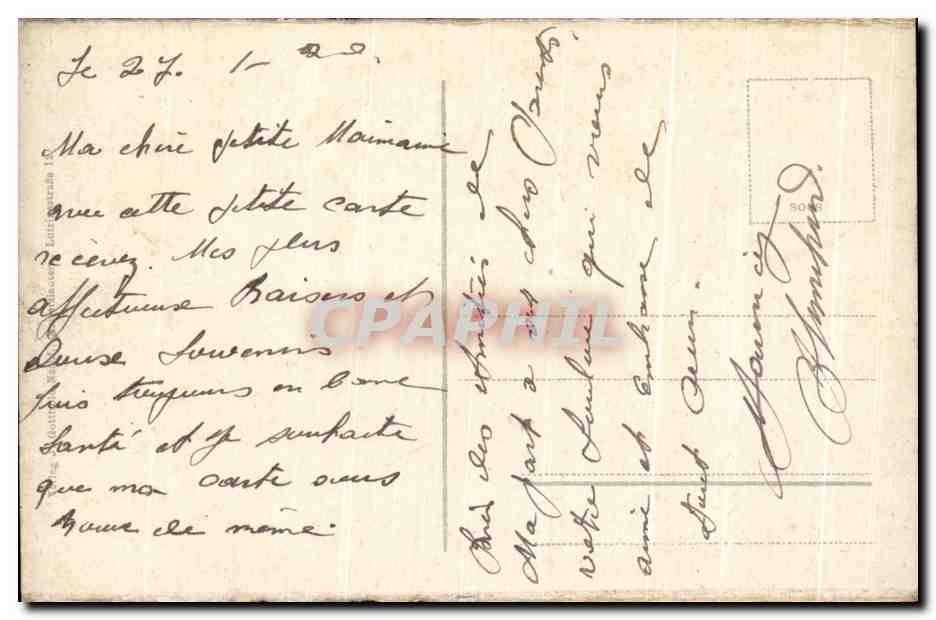 le 27. 1-22.
Ma chère petite Maimaine
avec cette petite carte
recevez. Mes plus
affectueuse Baisers et
Douse Souvenirs
suis toujours en bonne
santé et je souhaite
que ma carte vous
trouve de même.
Bien des Amitiés de
Ma part a vos chers Parents.
votre qui vous
aime et embrase de
tout
SOUS
CPAPHIL